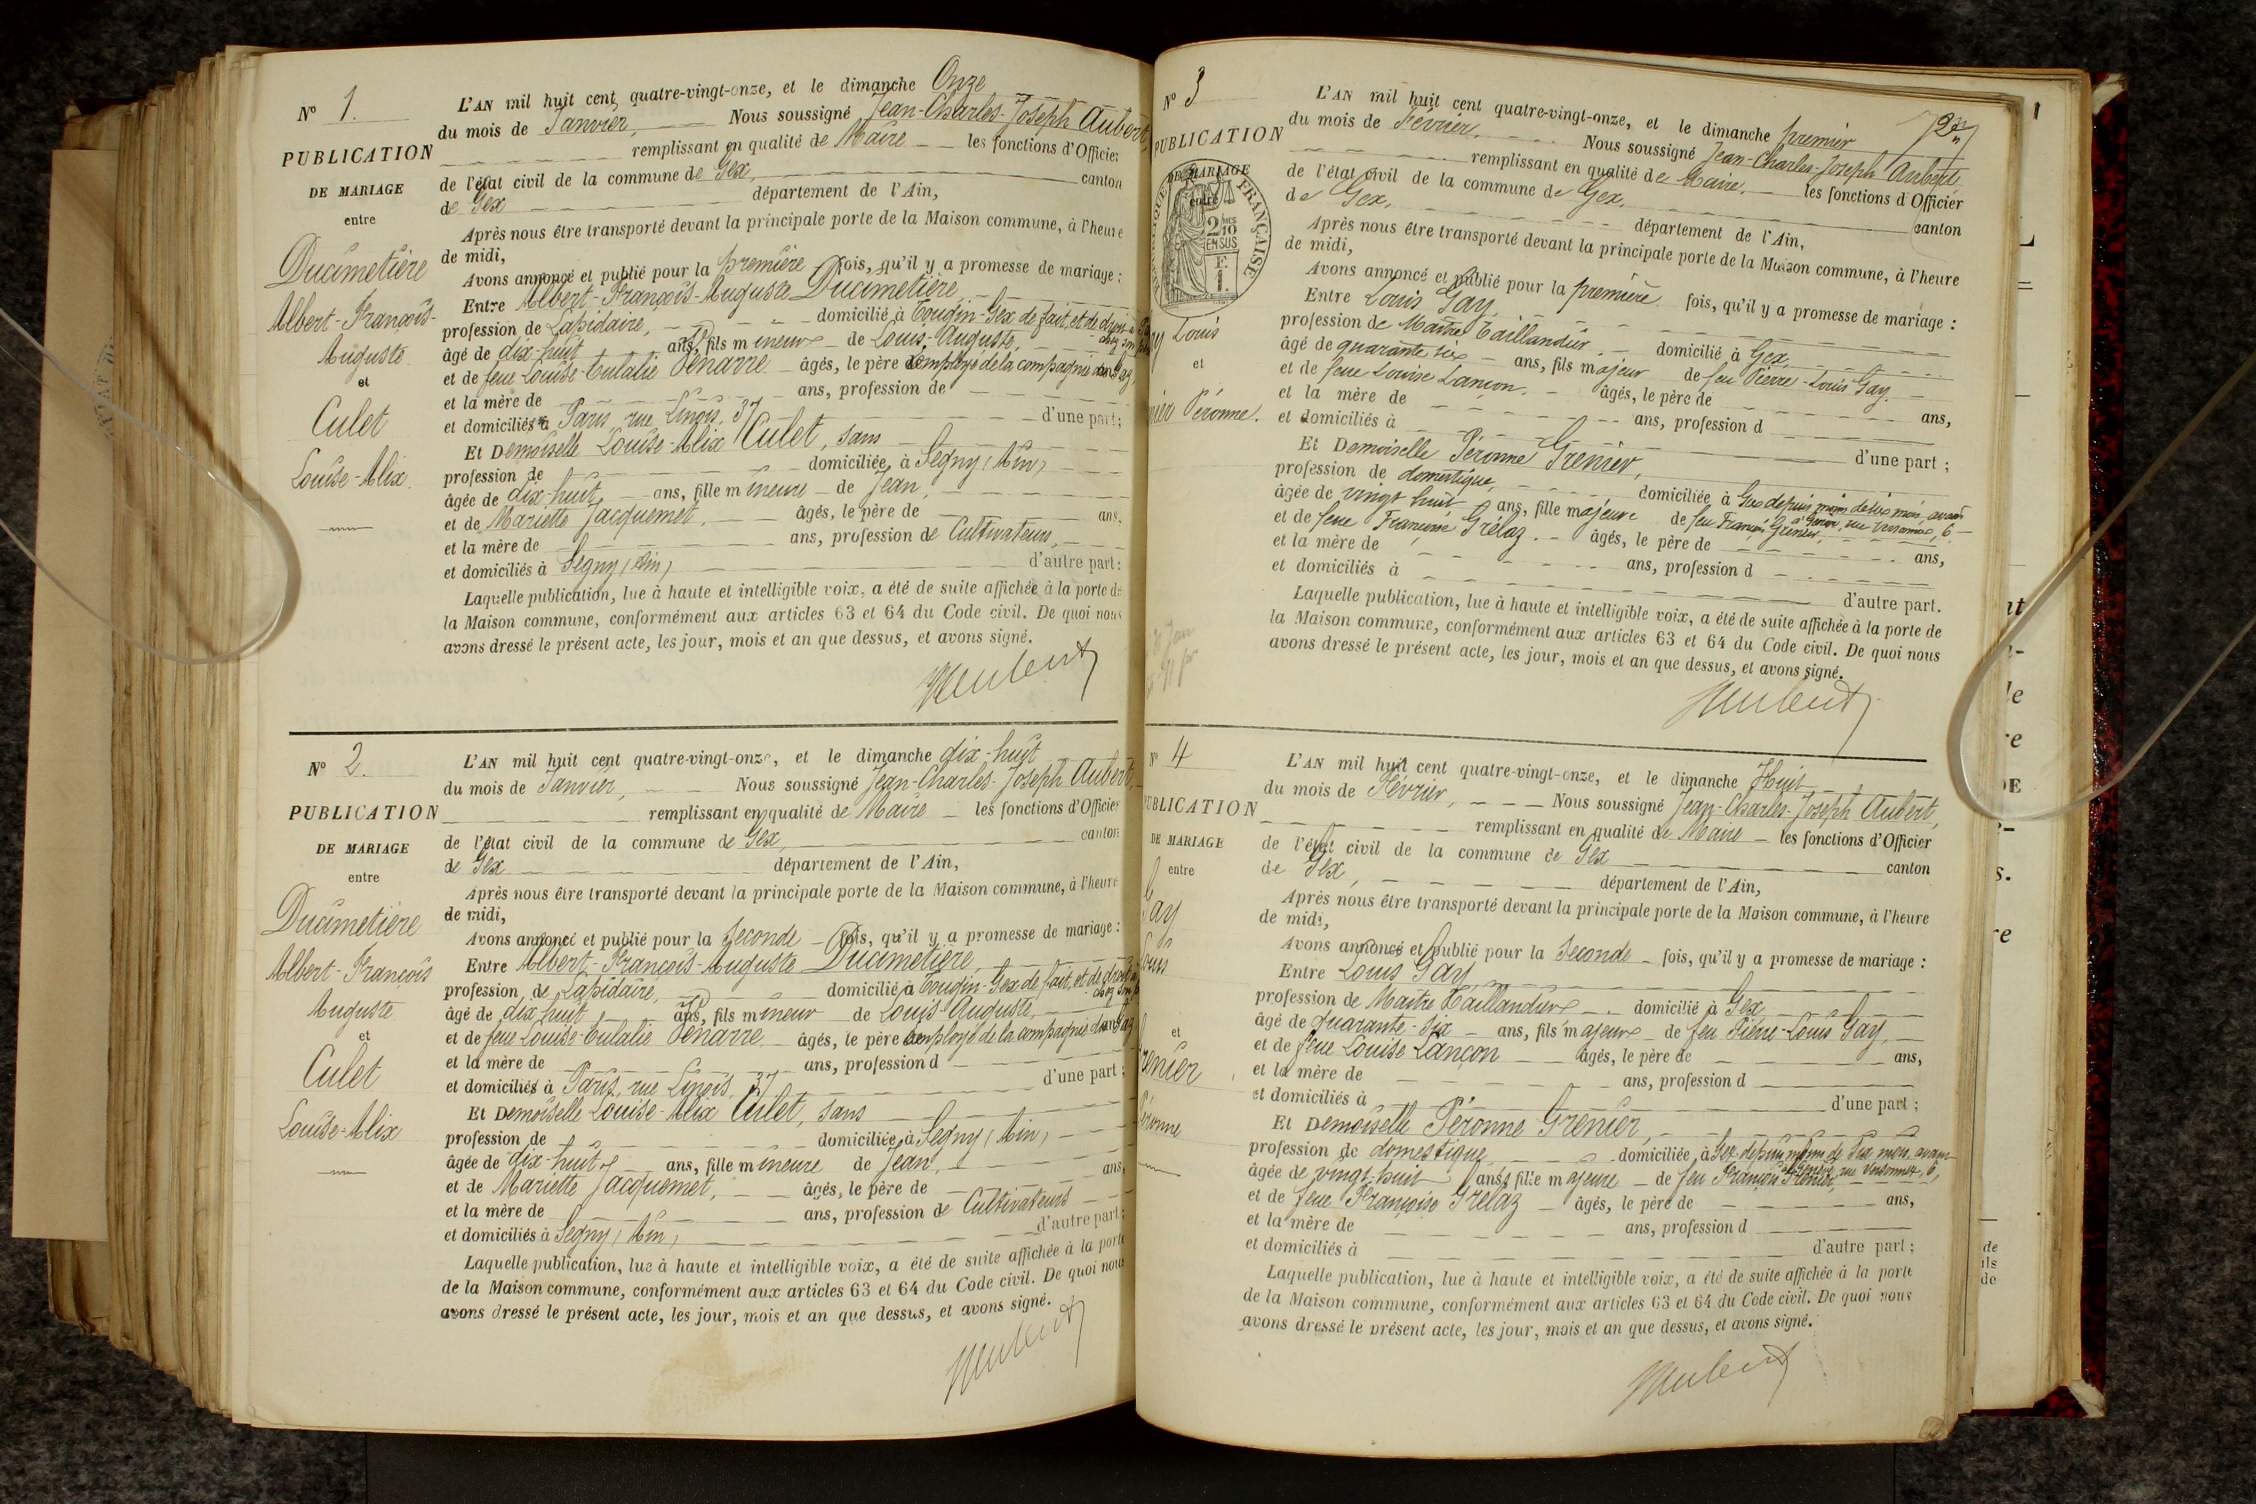 N° 1.
PUBLICATION
DE MARIAGE
entre
Ducimetière
Albert-François-
Auguste
et
Culet
Louise-Alix.
L'AN mil huit cent quatre-vingt-onze, et le dimanche Onze
du mois de Janvier, Nous soussigné Jean-Charles-Joseph Aubert,
remplissant en qualité de Maire les fonctions d'Officier
de l'état civil de la commune de Gex, canton
de Gex département de l'Ain,
Après nous être transporté devant la principale porte de la Maison commune, à l'heure
de midi,
Avons annoncé et publié pour la première fois, qu'il y a promesse de mariage :
Entre Albert-François-Auguste Ducimetière,
profession de Lapidaire, domicilié à Tougin-Gex de fait, et de droit à
chez son
âgé de dix-huit ans, fils mineur de Louis-Auguste,
et de feue Louise-Eulalie Penarre âgés, le père employé de la compagnie du Gaz,
et la mère de ans, profession de
et domiciliés à Paris, rue Linois, 37 d'une part;
Et Demoiselle Louise-Alix Culet, sans
profession de domiciliée à Segny (Ain)
âgée de dix-huit ans, fille mineure de Jean,
et de Mariette Jacquemet, âgés, le père de ans,
et la mère de ans, profession de Cultivateurs,
et domiciliés à Segny (Ain) d'autre part:
Laquelle publication, lue à haute et intelligible voix, a été de suite affichée à la porte de
la Maison commune, conformément aux articles 63 et 64 du Code civil. De quoi nous
avons dressé le présent acte, les jour, mois et an que dessus, et avons signé.
Aubert
N° 2.
PUBLICATION
DE MARIAGE
entre
Ducimetière
Albert-François
Auguste
et
Culet
Louise-Alix
L'AN mil huit cent quatre-vingt-onze, et le dimanche dix-huit
du mois de Janvier, Nous soussigné Jean-Charles-Joseph Aubert,
remplissant en qualité de Maire les fonctions d'Officier
de l'état civil de la commune de Gex, canton
de Gex département de l'Ain,
Après nous être transporté devant la principale porte de la Maison commune, à l'heure
de midi,
Avons annoncé et publié pour la seconde fois, qu'il y a promesse de mariage :
Entre Albert-François-Auguste Ducimetière
profession de Lapidaire, domicilié à Tougin-Gex de fait, et de droit
chez son
âgé de dix huit ans, fils mineur de Louis-Auguste,
et de feue Louise-Eulalie Penarre âgés, le père employé de la compagnie du Gaz
et la mère de ans, profession d
et domiciliés à Paris, rue Linois, 37 d'une part;
Et Demoiselle Louise-Alix Culet, sans
profession de domiciliée à Segny (Ain)
âgée de dix-huit ans, fille mineure de Jean,
et de Mariette Jacquemet, âgés, le père de ans,
et la mère de ans, profession de Cultivateurs
et domiciliés à Segny (Ain) d'autre part;
Laquelle publication, lue à haute et intelligible voix, a été de suite affichée à la porte
de la Maison commune, conformément aux articles 63 et 64 du Code civil. De quoi nous
avons dressé le présent acte, les jour, mois et an que dessus, et avons signé.
Aubert
N° 3
PUBLICATION
DE MARIAGE
entre
FRANÇAISE
2/10
EN SUS
Louis
et
Péronne.
L'AN mil huit cent quatre-vingt-onze, et le dimanche premier
du mois de Février, Nous soussigné Jean-Charles-Joseph Aubert
remplissant en qualité de Maire, les fonctions d'Officier
de l'état civil de la commune de Gex, canton
de Gex, département de l'Ain,
Après nous être transporté devant la principale porte de la Maison commune, à l'heure
de midi,
Avons annoncé et publié pour la première fois, qu'il y a promesse de mariage :
Entre Louis Gay,
profession de Maître Taillandier domicilié à Gex,
âgé de quarante six ans, fils majeur de feu Pierre-Louis Gay.
et de feue Louise Lançon. âgés, le père de ans,
et la mère de ans, profession d
et domiciliés à d'une part ;
Et Demoiselle Péronne Grenier,
profession de domestique, domiciliée à Gex depuis moins de six mois, avant
à Genève, rue Versonnex, 6
âgée de vingt huit ans, fille majeure de feu François Grenier,
et de feue Françoise Grélaz. âgés, le père de ans,
et la mère de ans, profession d
et domiciliés à d'autre part.
Laquelle publication, lue à haute et intelligible voix, a été de suite affichée à la porte de
la Maison commune, conformément aux articles 63 et 64 du Code civil. De quoi nous
avons dressé le présent acte, les jour, mois et an que dessus, et avons signé.
Aubert
N° 4
PUBLICATION
DE MARIAGE
entre
Gay
Louis
et
Grenier
Péronne
L'AN mil huit cent quatre-vingt-onze, et le dimanche Huit
du mois de Février, Nous soussigné Jean-Charles-Joseph Aubert,
remplissant en qualité de Maire les fonctions d'Officier
de l'état civil de la commune de Gex canton
de Gex, département de l'Ain,
Après nous être transporté devant la principale porte de la Maison commune, à l'heure
de midi,
Avons annoncé et publié pour la seconde fois, qu'il y a promesse de mariage :
Entre Louis Gay,
profession de Maître Taillandier domicilié à Gex
âgé de quarante-six ans, fils majeur de feu Pierre-Louis Gay,
et de feue Louise Lançon âgés, le père de ans,
et la mère de ans, profession d
et domiciliés à d'une part ;
Et Demoiselle Péronne Grenier,
profession de domestique domiciliée à Gex depuis moins de six mois, avant
à Genève, rue Versonnex, 6,
âgée de vingt-huit ans, fille majeure de feu François Grenier,
et de feue Françoise Grélaz âgés, le père de ans,
et la mère de ans, profession d
et domiciliés à d'autre part ;
Laquelle publication, lue à haute et intelligible voix, a été de suite affichée à la porte
de la Maison commune, conformément aux articles 63 et 64 du Code civil. De quoi nous
avons dressé le présent acte, les jour, mois et an que dessus, et avons signé.
Aubert